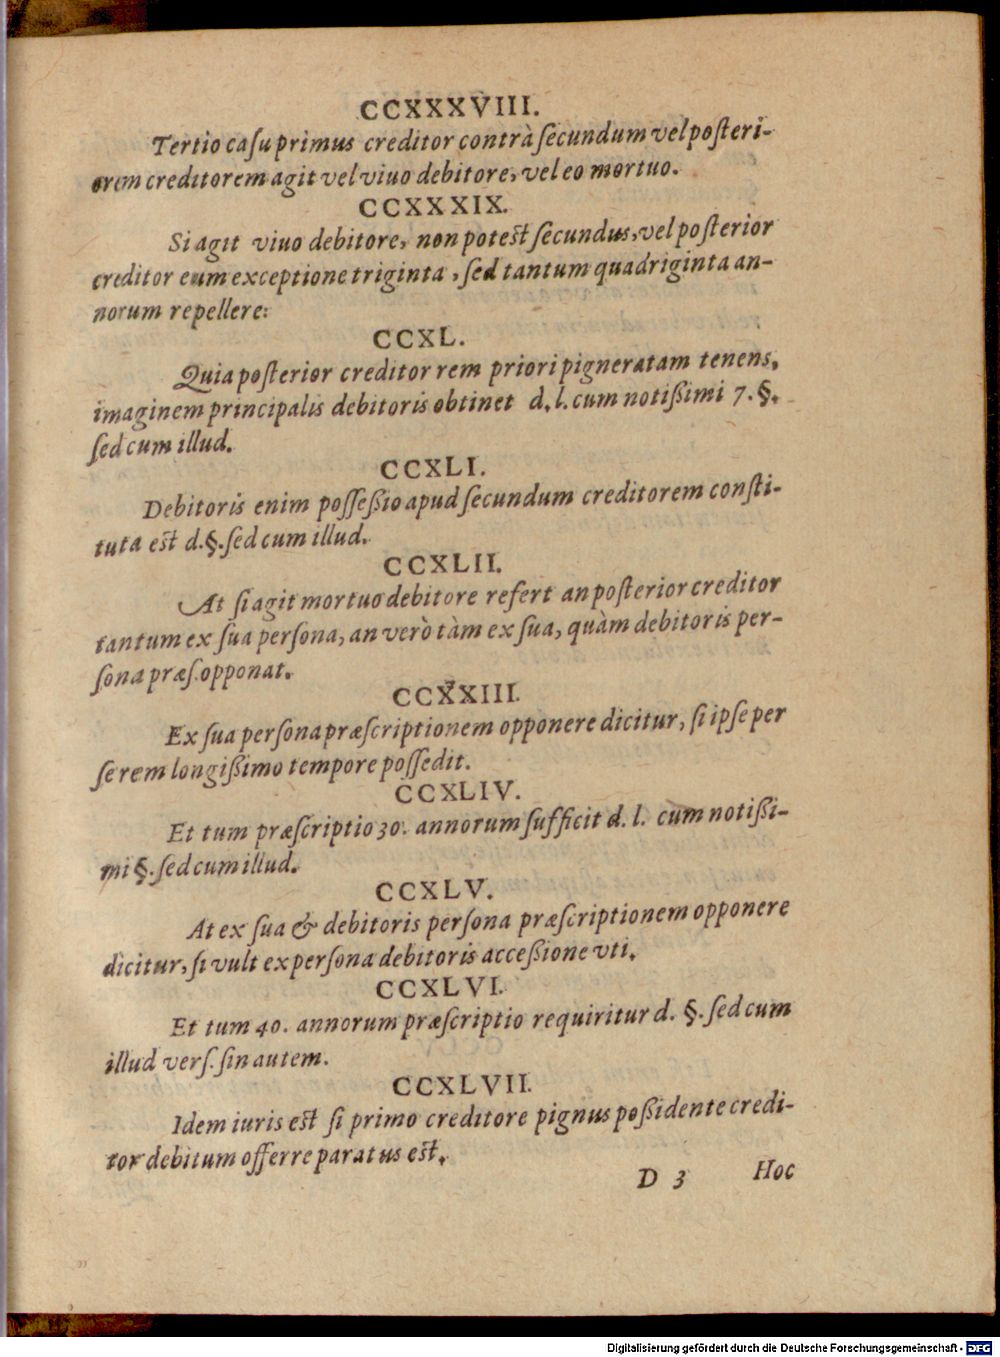 CCXXXVIII.
Tertio caſu primus creditor contrà ſecundum vel poſteri-
orem creditorem agit vel viuo debitore, vel eo mortuo.
CCXXXIX.
Si agit viuo debitore, non potest ſecundus, vel poſterior
creditor eum exceptione triginta, ſed tantum quadriginta an-
norum repellere:
CCXL.
Quia poſterior creditor rem priori pigneratam tenens,
imaginem principalis debitoris obtinet d. l. cum notißimi 7. §.
ſed cum illud.
CCXLI.
Debitoris enim poſſeßio apud ſecundum creditorem conſti-
tuta est d. §. ſed cum illud.
CCXLII.
At ſi agit mortuo debitore refert an poſterior creditor
tantum ex ſua perſona, an verò tàm ex ſua, quàm debitoris per-
ſona præſ. opponat.
CCXXIII.
Ex ſua perſona præſcriptionem opponere dicitur, ſi ipſe per
ſe rem longißimo tempore poſſedit.
CCXLIV.
Et tum præſcriptio 30. annorum ſufficit d. l. cum notißi-
mi §. ſed cum illud.
CCXLV.
At ex ſua & debitoris perſona præſcriptionem opponere
dicitur, ſi vult ex perſona debitoris acceßione vti.
CCXLVI.
Et tum 40. annorum præſcriptio requiritur d. §. ſed cum
illud verſ. ſin autem.
CCXLVII.
Idem iuris est ſi primo creditore pignus poßidente credi-
tor debitum offerre paratus est.
D 3 Hoc
Digitalisierung gefördert durch die Deutsche Forschungsgemeinschaft - DFG